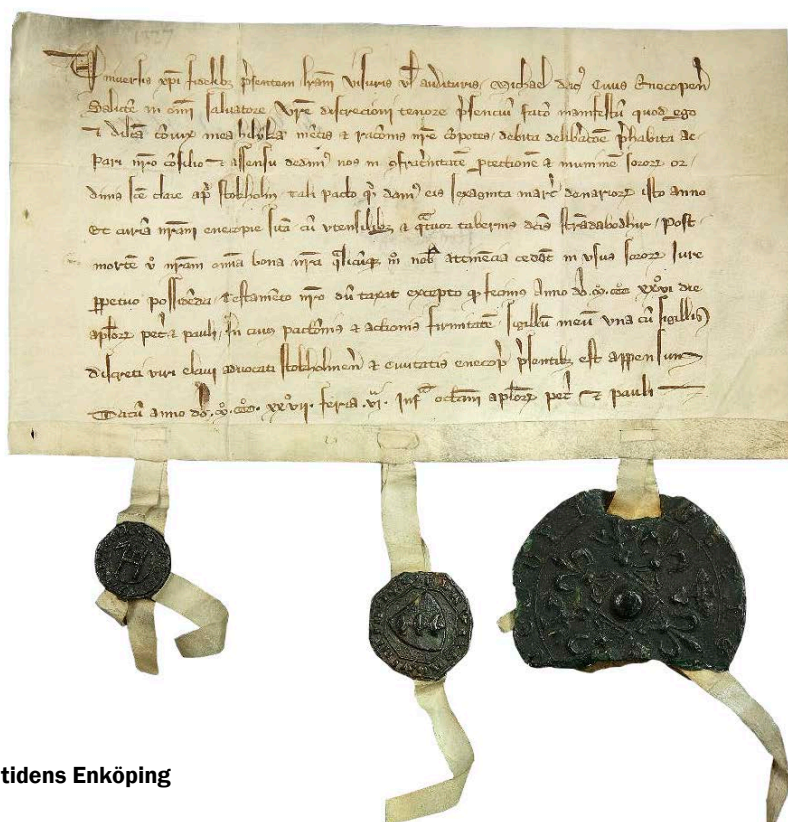 1327
Universis xpi fidelibz presentem lram visuris vl audituris, Michael dcus Civis Enecopen
Salutem in omni salvatore, vre discrecioni tenore presenciu facio manifestu quod ego
et dilca coniux mea mentis et racionis nre compotes, debita deliberacoe prehabita ac
pari nro consilio et assensu dedimus nos in confraternitatem proteccionem et munimen soror or
dinis sce clare apd stokholm, tali pacto qd damus eis sexaginta marc denarior isto anno
Et curia nram enecopie sita cu vtensilibz et quatuor tabernis dcis stradabodhur, post
morte vo nram omia bona nra nob attinencia cedat in vsus soror Iure
perpetuo possidenda, Testamento nro du taxat excepto qd fecimus Anno do. m. ccc. xxvi die
aplor petri et pauli, In cuius pactionis et firmitate sigillum meu vna cu sigillis
discreti viri elavi advocati stokholmen et civitatis enecop presentibz est appensum
Datu anno do. m. ccc. xxvii. feria. vi. infra octam aplor petri et pauli
tidens Enköping